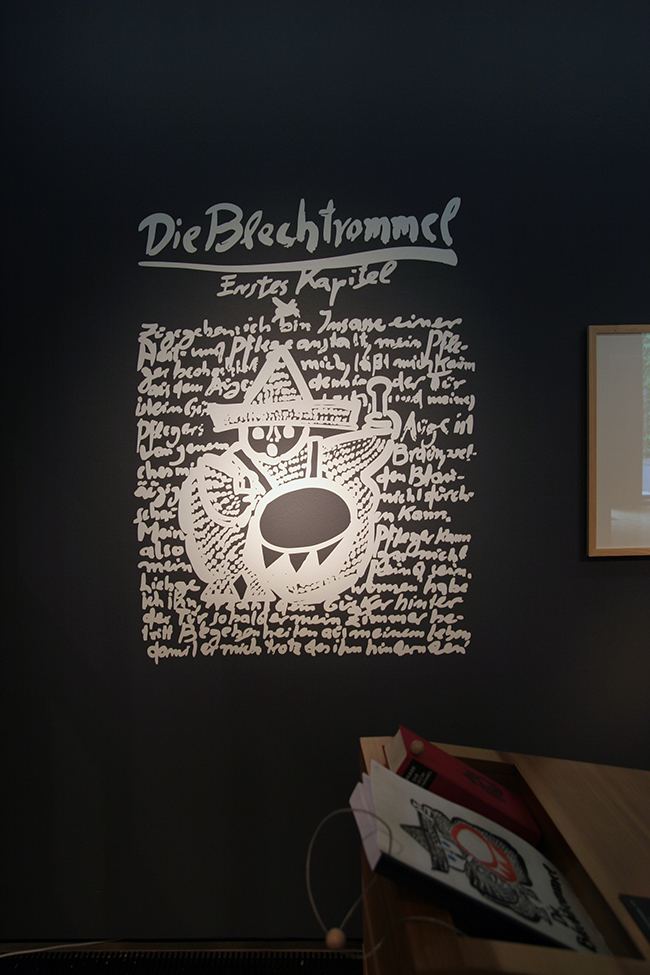 Die Blechtrommel
Erstes Kapitel
Zugegeben: ich bin Insasse einer
Heil- und Pflegeanstalt, mein Pfle-
ger beobachtet mich, läßt mich kaum
aus dem Auge denn in der Tür
und meines
Pflegers Auge ist
von jenem Braun, wel-
den Blau-
äugi nicht durch-
n kann.
Mein Pfleger kann
also gar nicht
mein Feind sein
liebge wonnen habe
ich ihn dem Gucker hinter
der Tür, sobald er mein Zimmer be-
tritt Begebenheiten aus meinem Leben,
damit er mich trotz des ihn hindernden
Die
Blechtrommel